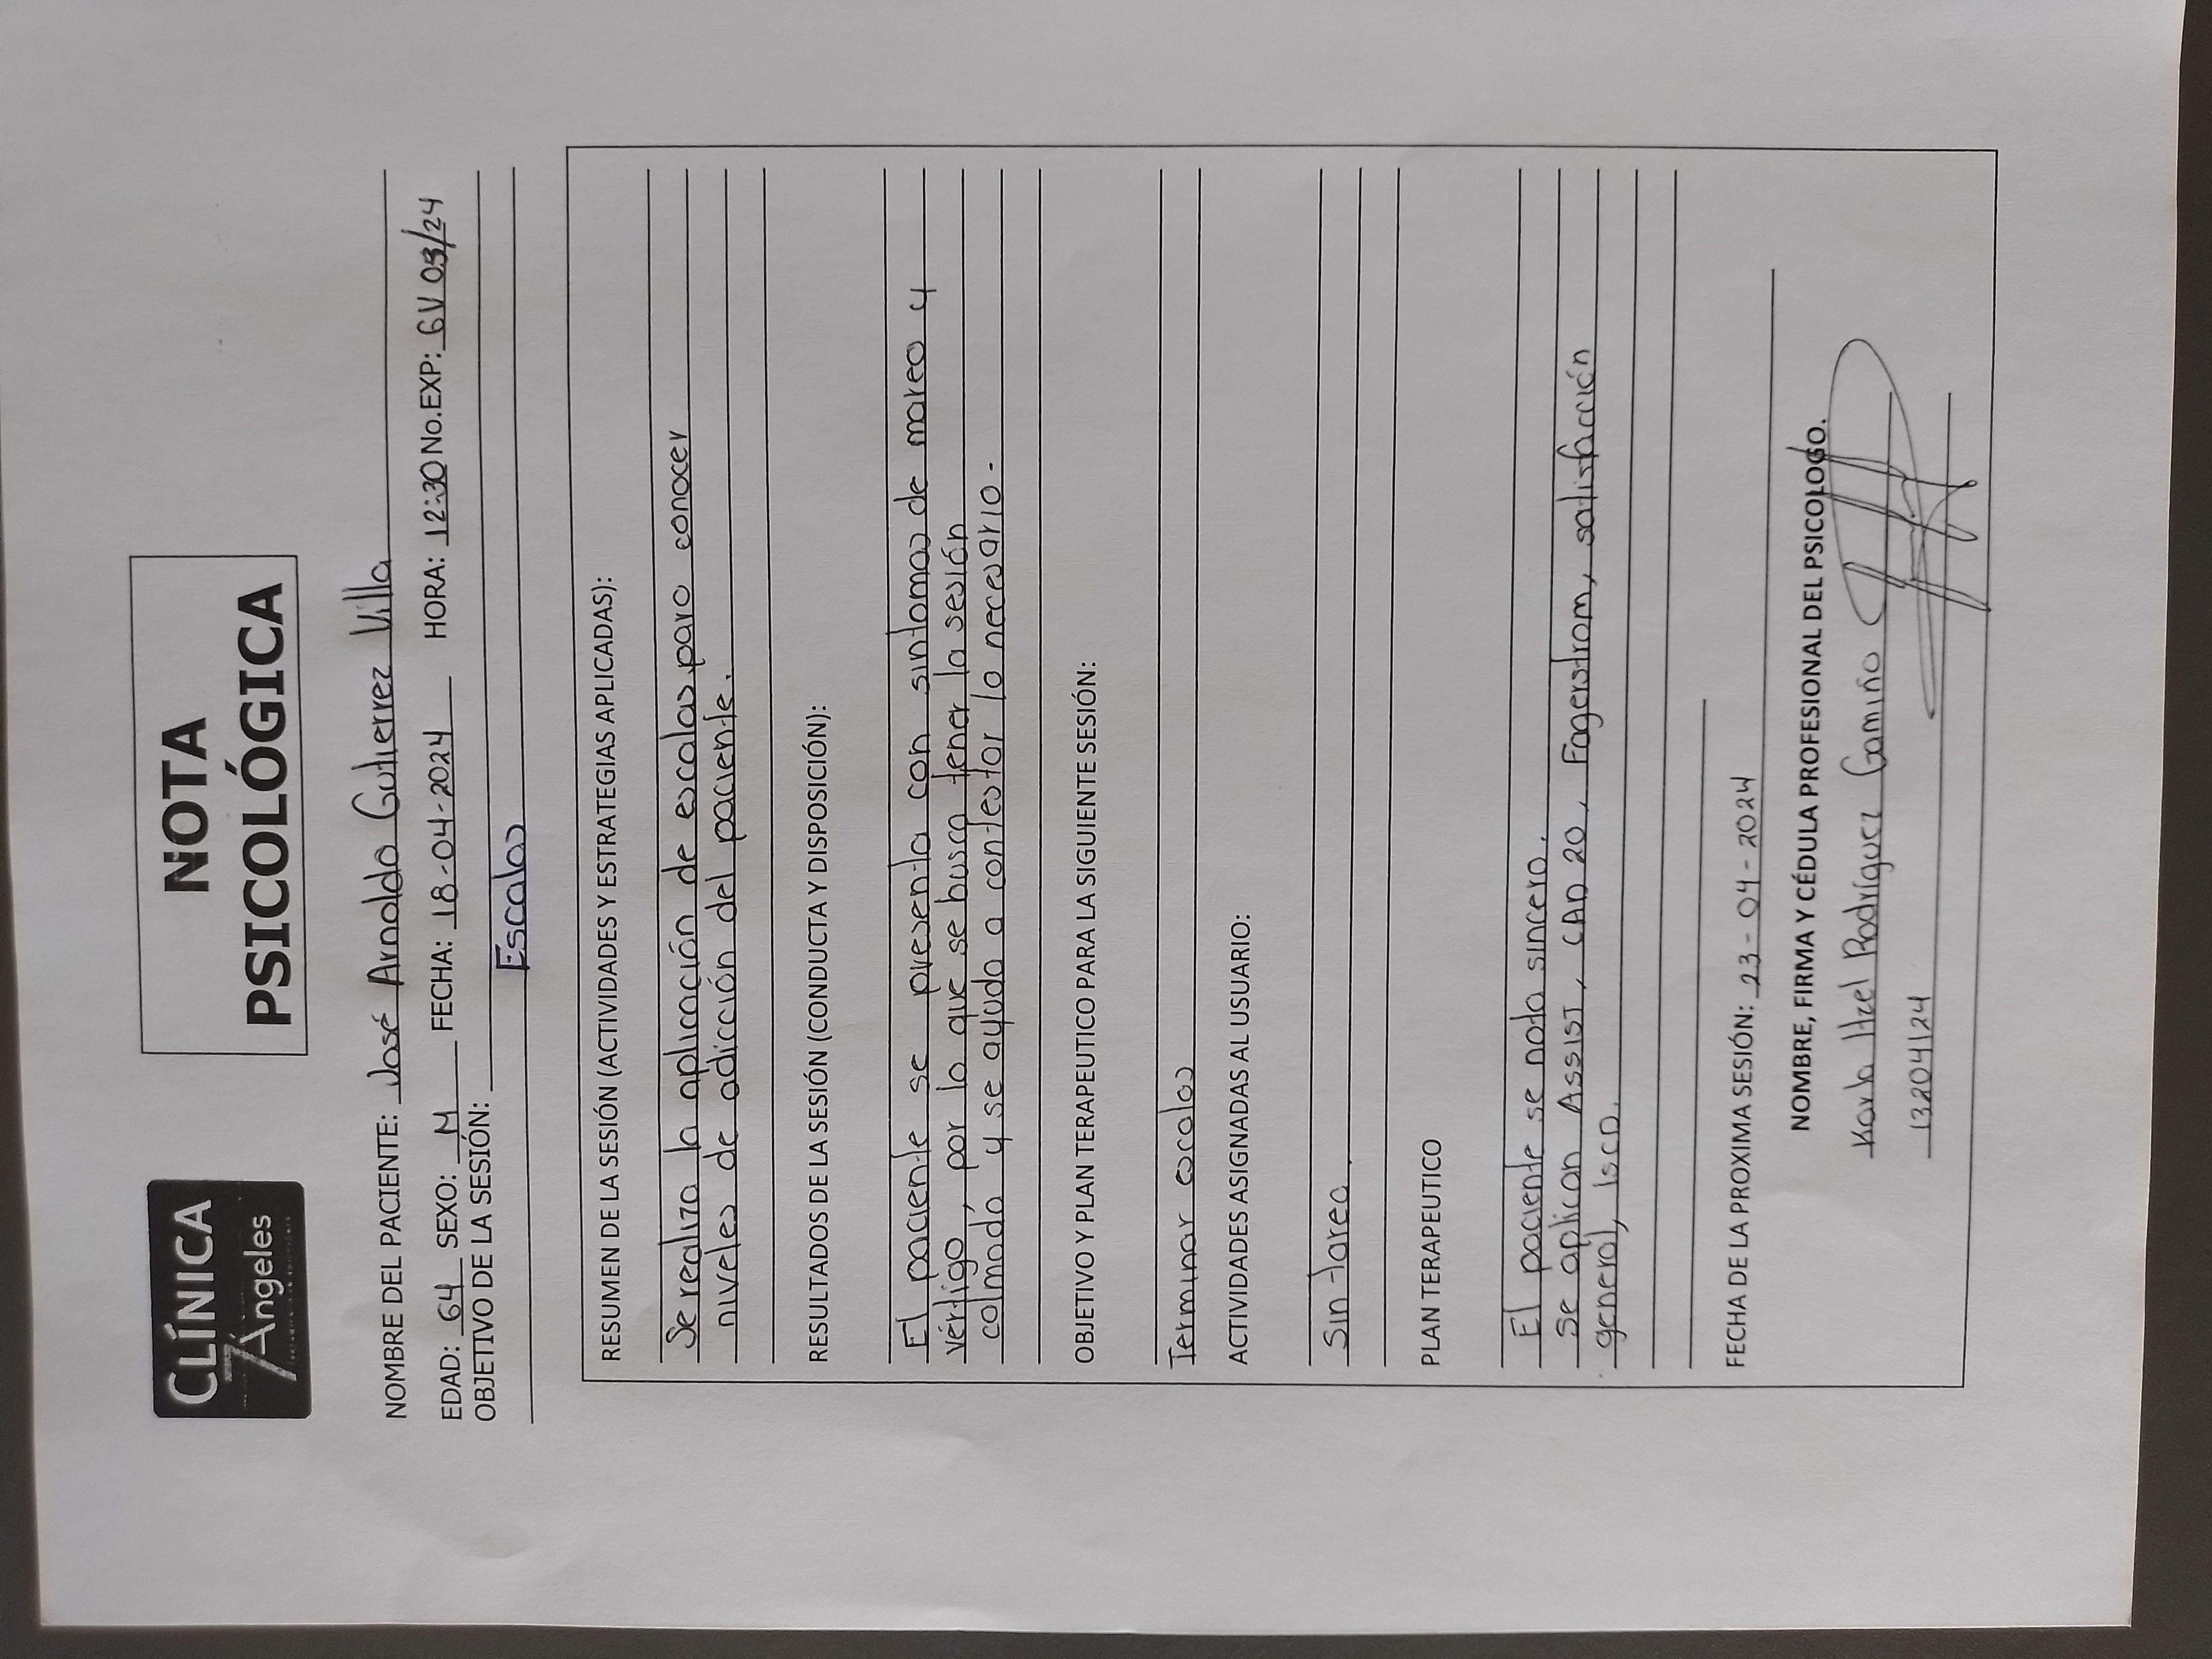 CLÍNICA
7Ángeles
NOTA
PSICOLÓGICA
NOMBRE DEL PACIENTE: José Arnoldo Gutierrez Villa
EDAD: 64 SEXO: M FECHA: 18-04-2024 HORA: 12:30 No.EXP: GV 03/24
OBJETIVO DE LA SESIÓN:
Escalas
RESUMEN DE LA SESIÓN (ACTIVIDADES Y ESTRATEGIAS APLICADAS):
Se realiza la aplicación de escalas para conocer
niveles de adicción del paciente.
RESULTADOS DE LA SESIÓN (CONDUCTA Y DISPOSICIÓN):
El paciente se presenta con sintomas de mareo y
vértigo, por lo que se busca tener la sesión
calmada y se ayuda a contestar lo necesario.
OBJETIVO Y PLAN TERAPEUTICO PARA LA SIGUIENTE SESIÓN:
Terminar escalas
ACTIVIDADES ASIGNADAS AL USUARIO:
Sin tarea.
PLAN TERAPEUTICO
El paciente se nota sincero.
Se aplican ASSIST, CAD 20, Fagerstrom, satisfacción
general, ISCD.
FECHA DE LA PROXIMA SESIÓN: 23-04-2024
NOMBRE, FIRMA Y CÉDULA PROFESIONAL DEL PSICOLOGO.
Karla Itzel Rodríguez Gamiño
13204124